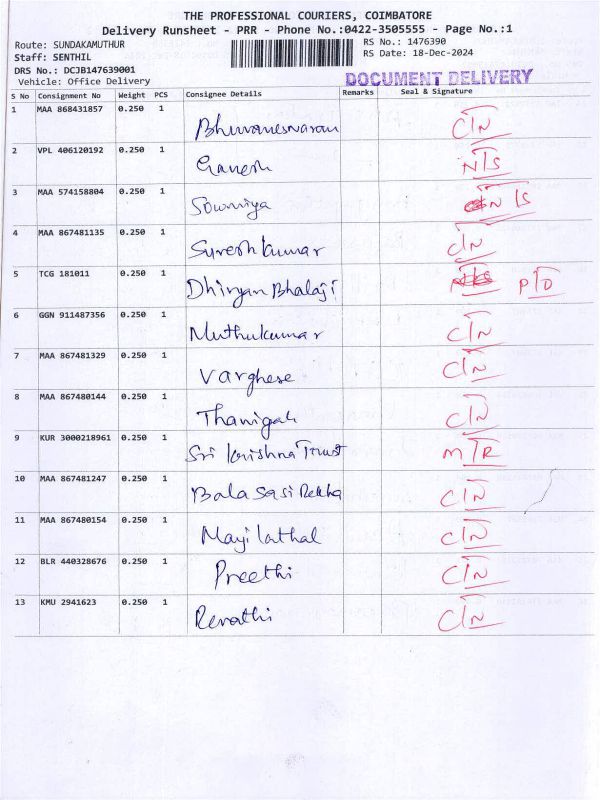 THE PROFESSIONAL COURIERS, COIMBATORE
Delivery Runsheet - PRR - Phone No.:0422-3505555 - Page No.:1
Route: SUNDAKAMUTHUR RS No.: 1476390
Staff: SENTHIL RS Date: 18-Dec-2024
DRS No.: DCJB147639001
Vehicle: Office Delivery DOCUMENT DELIVERY
S No Consignment No Weight PCS Consignee Details Remarks Seal & Signature
1 MAA 868431857 0.250 1 Bhuvaneswaran C/N
2 VPL 406120192 0.250 1 Ganesh N/S
3 MAA 574158804 0.250 1 Sowmiya N/S
4 MAA 867481135 0.250 1 Suresh kumar C/N
5 TCG 181011 0.250 1 Dhiryan Bhalaji P/D
6 GGN 911487356 0.250 1 Muthukumar C/N
7 MAA 867481329 0.250 1 Varghese C/N
8 MAA 867480144 0.250 1 C/N
9 KUR 3000218961 0.250 1 Sri krishna Trust M/R
10 MAA 867481247 0.250 1 Bala Sasi Rekha C/N
11 MAA 867480154 0.250 1 Mayilathal C/N
12 BLR 440328676 0.250 1 Preethi C/N
13 KMU 2941623 0.250 1 Revathi C/N